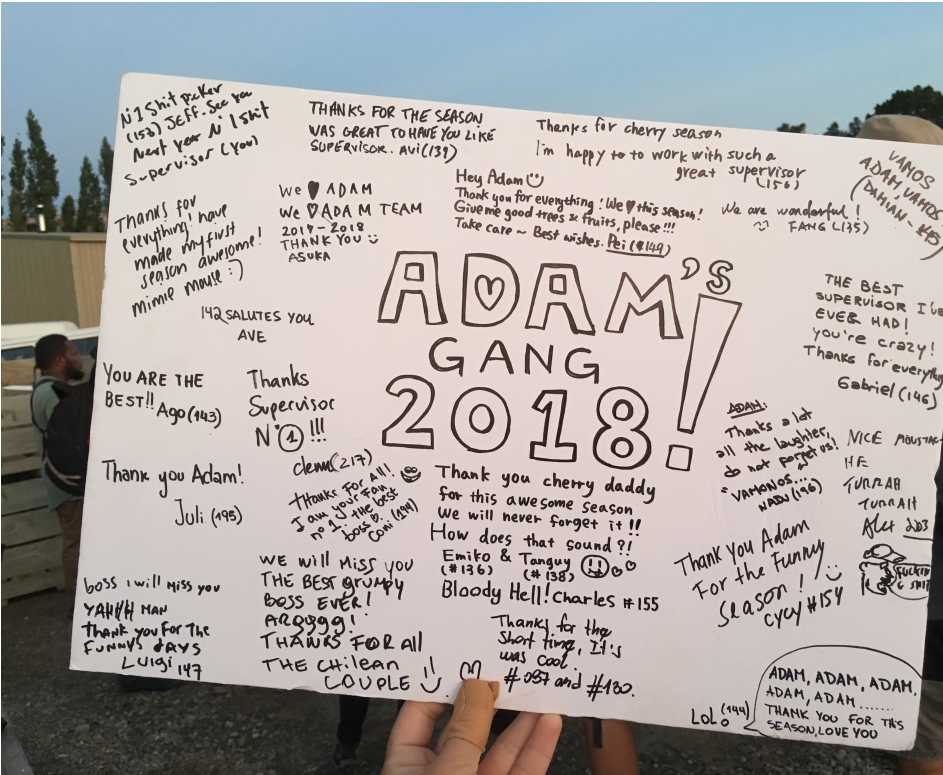 N°1 Shit picker
(153) JEFF. See you
Next year N°1 Shit
Supervisor (you)
THANKS FOR THE SEASON
WAS GREAT TO HAVE YOU LIKE
SUPERVISOR. AVI (139)
Thanks for cherry season
I'm happy to to work with such a
great supervisor
(156)
VAMOS
ADAM, VAMOS
(DAMIAN - #45)
Thanks for
everything! have
made my first
season awesome!
mimie mouse :)
We ♥ ADAM
We ♥ ADAM TEAM
2017-2018
THANK YOU
ASUKA
Hey Adam
Thank you for everything! We ♥ this season!
Give me good trees & fruits, please!!!
Take care ~ Best wishes. Pei (#149)
We are wonderful!
FANG (135)
ADAM's
GANG
2018!
142 SALUTES YOU
AVE
THE BEST
SUPERVISOR I'VE
EVER HAD!
you're crazy!
Thanks for everything
Gabriel (146)
YOU ARE THE
BEST!! Ago (143)
Thanks
Supervisor
N°1!!!
clem (217)
ADAM:
Thanks a lot
all the laughter,
do not forget us!
"VAMONOS..."
NADU (196)
NICE MOUSTAC
HE
TURRAH
TURRAH
Alex
Thank you Adam!
Juli (195)
THANKS FOR All
I am your Fan,
n°1 the best
boss
Coni (194)
Thank you cherry daddy
for this awesome season
We will never forget it!!
How does that sound?!
Emiko & Tanguy
(#136) (#138)
Bloody Hell! Charles #155
Thank you Adam
For the Funny
season!
CYCY #154
FUCKIN
SHIT
boss i will miss you
YAHHH MAN
THANK YOU FOR THE
FUNNYS DAYS
LUIGI 147
WE WILL MISS YOU
THE BEST grumpy
BOSS EVER!
ARGGGG!
THANKS FOR All
THE CHILEAN
COUPLE
Thanks for the
short time, It's
was cool.
#037 and #130.
LOL! (144)
ADAM, ADAM, ADAM,
ADAM, ADAM ......
THANK YOU FOR THIS
SEASON, LOVE YOU